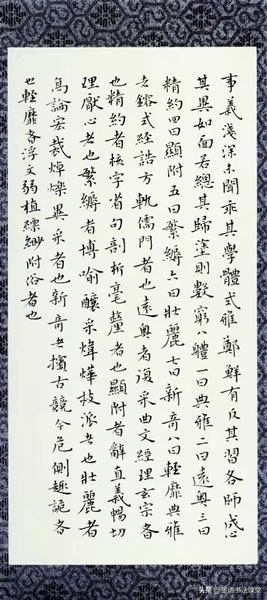 事義淺深未聞乖其學體式雅鄭鮮有反其習各師成心
其異如面若總其歸塗則數窮八體一曰典雅二曰遠奧三曰
精約四曰顯附五曰繁縟六曰壯麗七曰新奇八曰輕靡典雅
者鎔式經誥方軌儒門者也遠奧者複采曲文經理玄宗者
也精約者核字省句剖析毫釐者也顯附者辭直義暢切
理厭心者也繁縟者博喻釀采煒燁枝派者也壯麗者
高論宏裁焯爍異采者也新奇者擯古競今危側趣詭者
也輕靡者浮文弱植縹緲附俗者也
头条 @墨语书法课堂